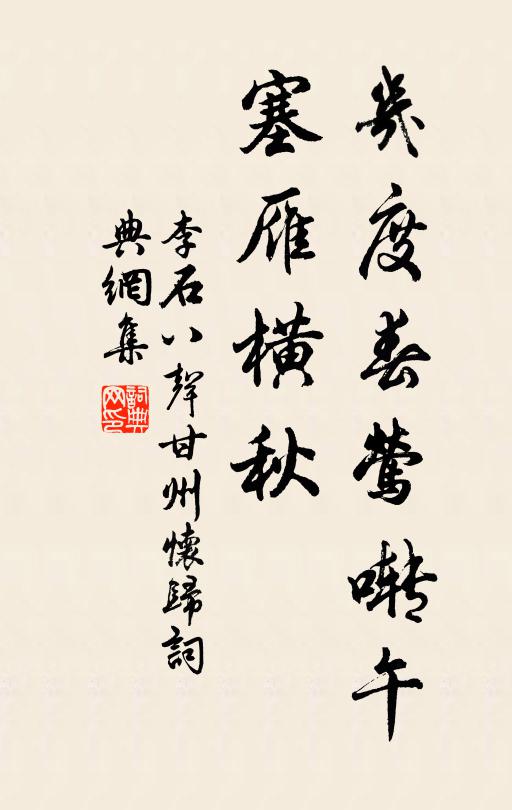 幾度春鶯囀午
塞雁橫秋
李石八聲甘州懷歸詞
典網集
詞典网印